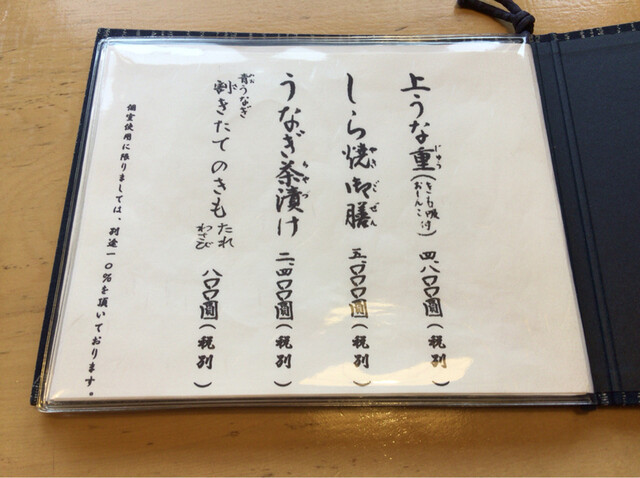 上うな重(きも吸付 おしんこ) 四、八〇〇圓(税別)
じゅう
しら焼御膳 五、〇〇〇圓(税別)
やき ごぜん
うなぎ茶漬け 二、四〇〇圓(税別)
ちゃづ
青うなぎ
割きたてのきも たれ わさび 八〇〇圓(税別)
個室使用に限りましては、別途一〇%を頂いております。